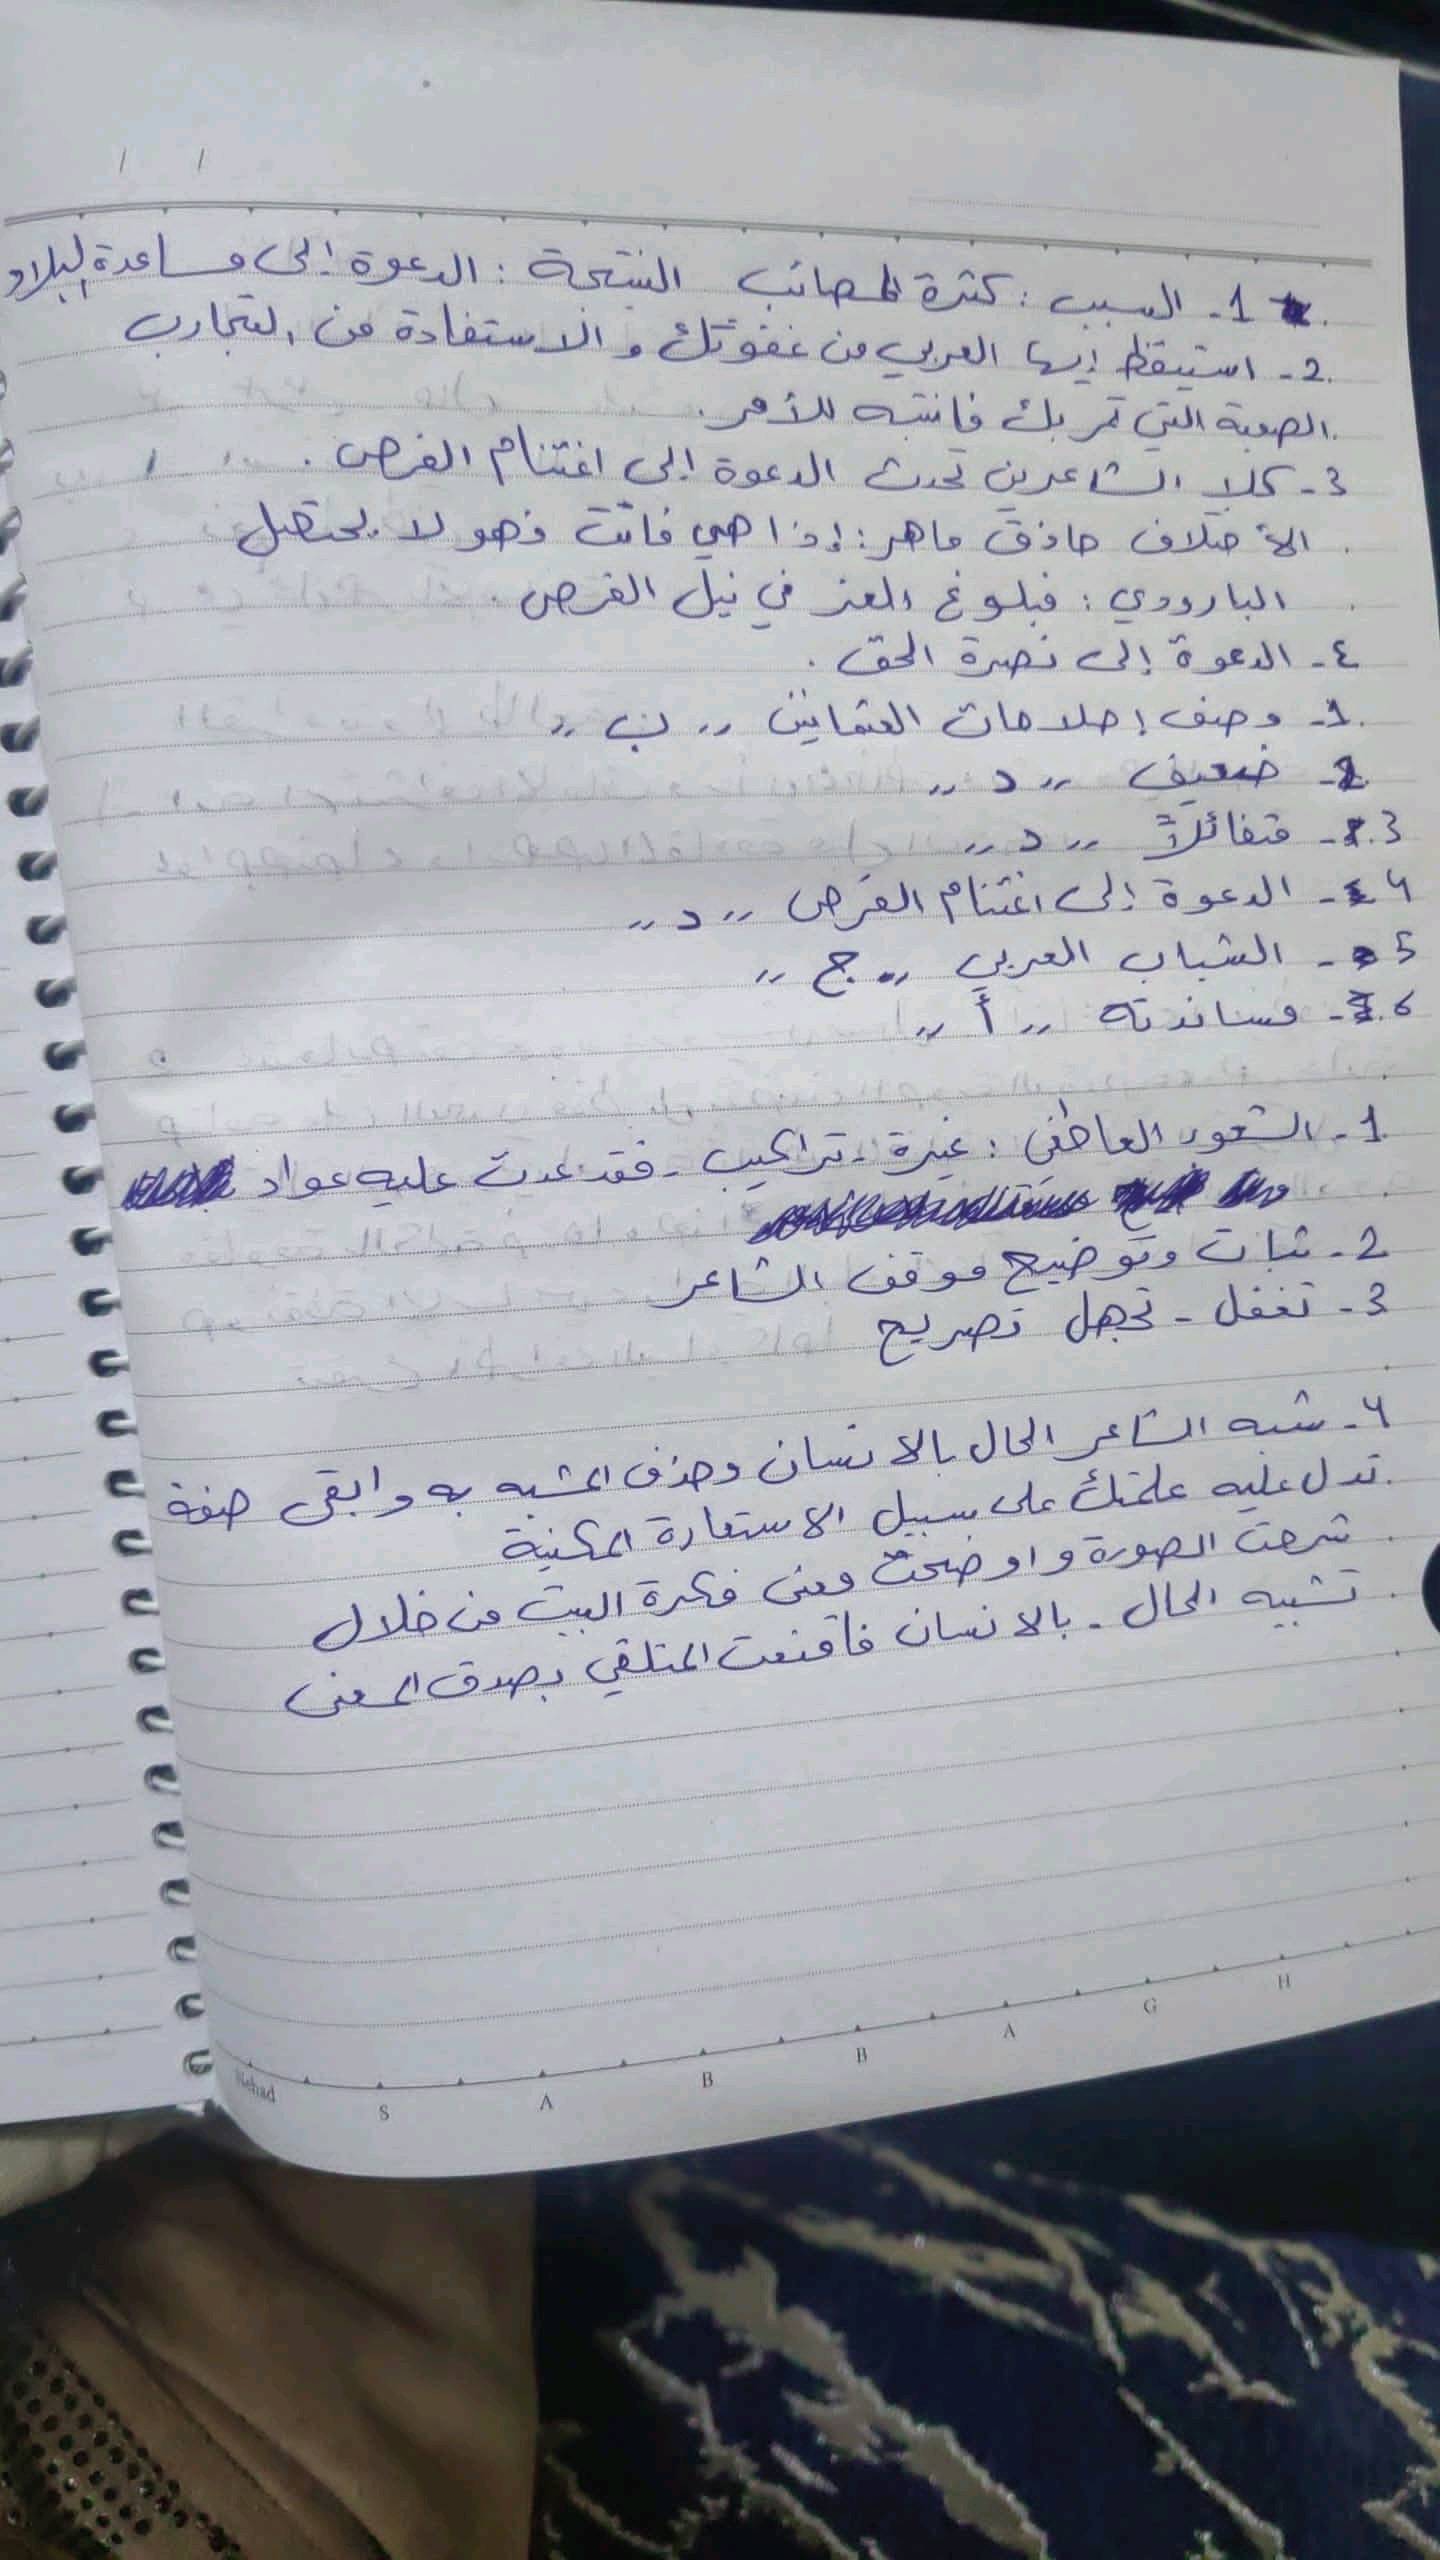 1- السبب : كثرة المصائب النتيجة : الدعوة إلى مساعدة البلاد
2- استيقظ إيها العربي من غفوتك و الاستفادة من التجارب
الصعبة التي تمر بك فانتبه للأمر .
3- كلا الشاعرين تحدث الدعوة إلى اغتنام الفرص .
الأختلاف حاذق ماهر : إذا هي فاتت فهو لا يحتصل
البارودي : فبلوغ العز في نيل الفرص .
٤- الدعوة إلى نصرة الحق .
1- وصف إصلاحات العثمانيين ,, ب ,,
2- ضعيف ,, د ,,
3- متفائلاً ,, د ,,
4- الدعوة إلى اغتنام الفرص ,, د ,,
5- الشباب العربي ,, ج ,,
6- مساندته ,, أ ,,
1- الشعور العاطفي : غيرة - تراكيب - فقد عدت عليه عواد
2- ثبات وتوضيح موقف الشاعر
3- تغفل - تجهل تصريح
4- شبه الشاعر الحال بالانسان وحذف المشبه به وابقى صفة
تدل عليه علمتك على سبيل الاستعارة المكنية
شرحت الصورة و اوضحت معنى فكرة البيت من خلال
تشبيه الحال - بالانسان فاقنعت المتلقي بصدق المعنى
Nehad S A B B A G H